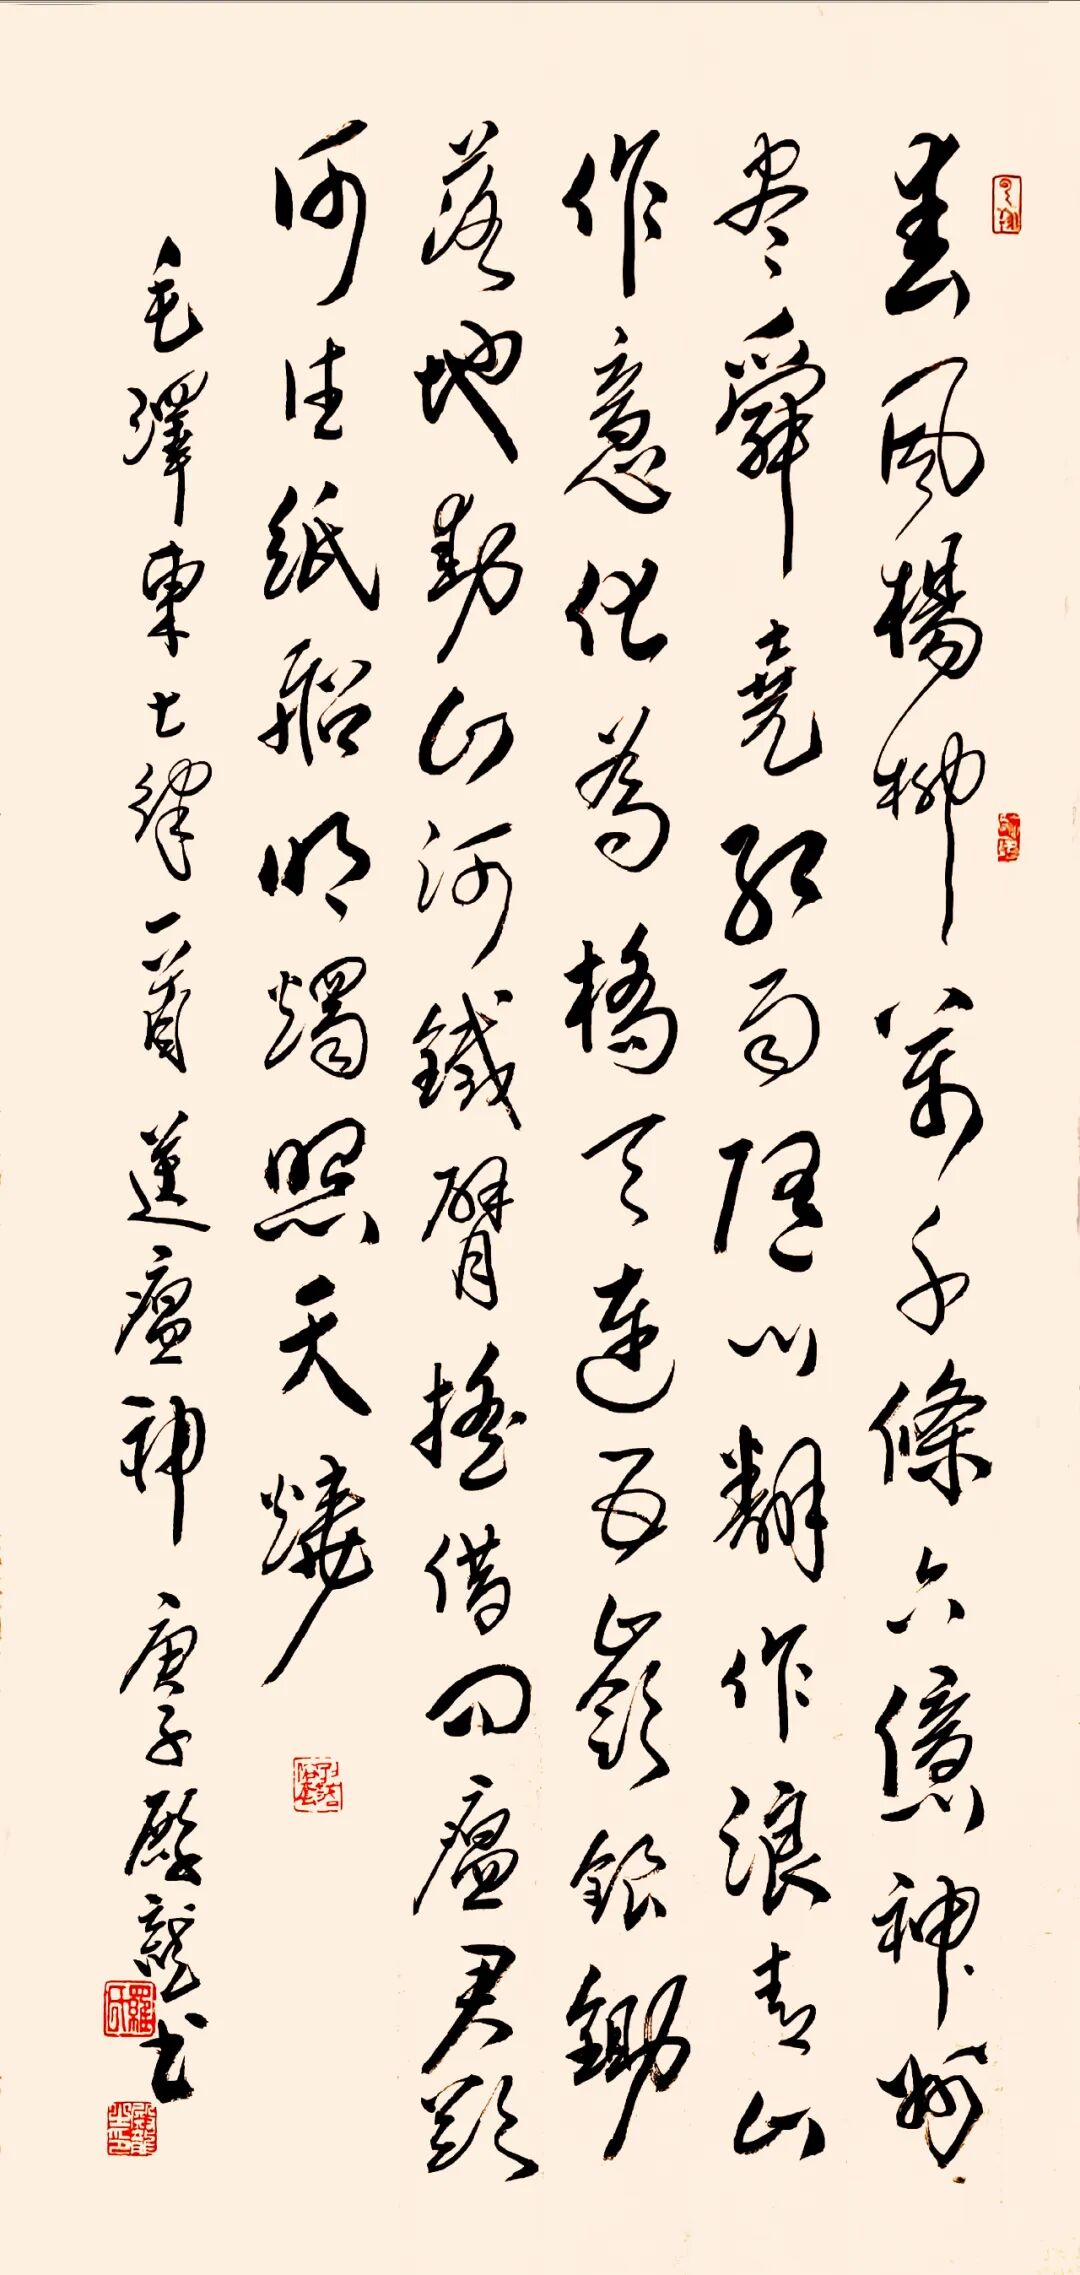 春风楊柳萬千條六億神州
尽舜堯红雨随心翻作浪青山
作意化為橋天連五嶺銀鋤
落地動山河鐵臂搖借问瘟君欲
何往纸船明燭照天燒
毛澤東七律一首送瘟神 庚子殿龍书
羅氏